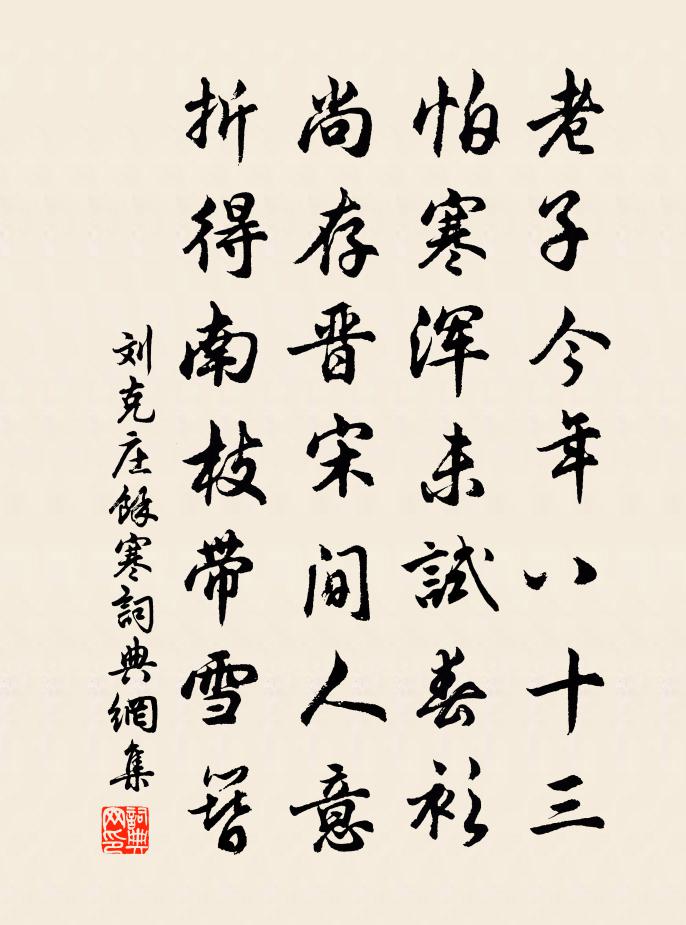 老子今年八十三
怕寒浑未試春衫
尚存晋宋间人意
折得南枝带雪簪
刘克庄餘寒詞典網集
詞典网印